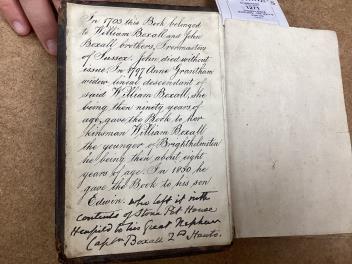 In 1703 this Book belonged
to William Boxall and John
Boxall brothers, Ironmasters
of Sussex. John died without
issue. In 1797 Anne Grantham
widow lineal descendant of
said William Boxall, she
being then ninety years of
age, gave the Book to her
kinsman William Boxall
the younger of Brighthelmston
he being then about eight
years of age. In 1850, he
gave the Book to his son
Edwin. who left it with
contents of Stone Pit House
Hempsted to his Great Nephew
Captn Boxall 2nd Hants.
1271